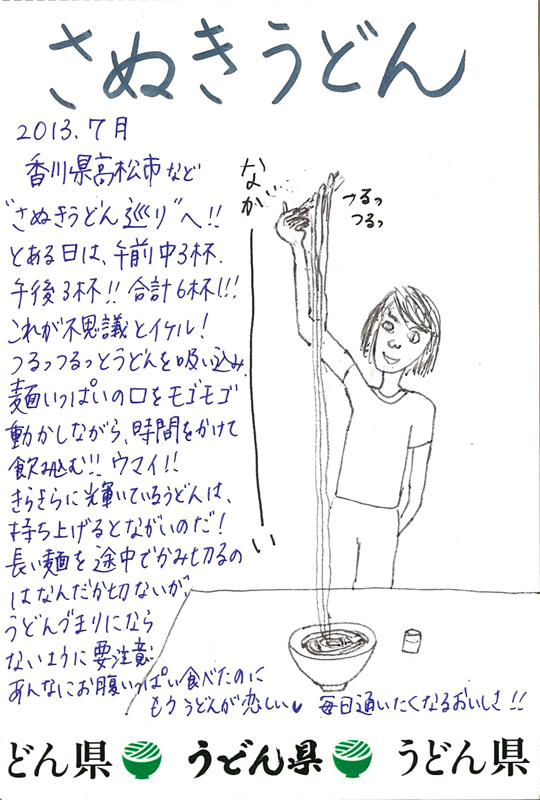 さぬきうどん
2013.7月
香川県高松市など
"さぬきうどん巡り"へ!!
とある日は、午前中3杯.
午後3杯!! 合計6杯!!!
これが不思議とイケル!
つるっつるっとうどんを吸い込み.
麺いっぱいの口をモゴモゴ
動かしながら、時間をかけて
飲み込む!! ウマイ!!
きらきらに光輝いているうどんは、
持ち上げるとながいのだ!
長い麺を途中でかみ切るの
はなんだか切ないが、
うどんづまりになら
ないように要注意.
あんなにお腹いっぱい食べたのに
もううどんが恋しい♥ 毎日通いたくなるおいしさ!!
なが――い
つるっ
つるっ
どん県 うどん県 うどん県